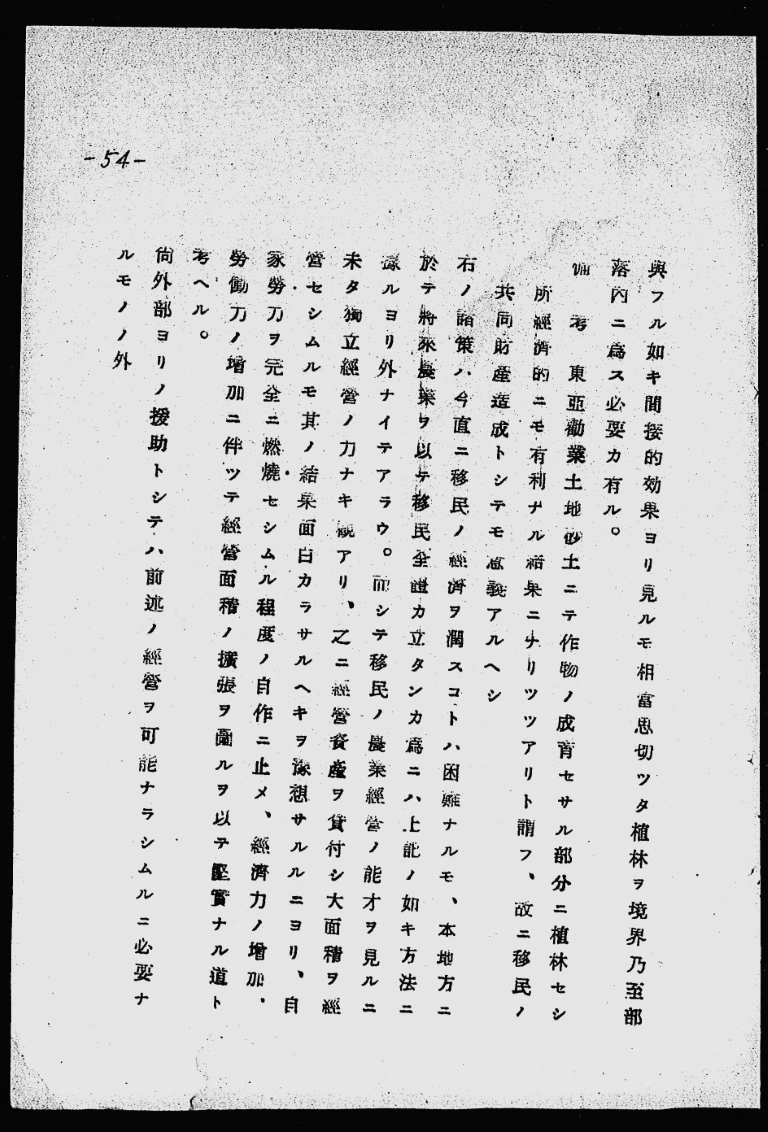 -54-
與フル如キ間接的効果ヨリ見ルモ相當思切ツタ植林ヲ境界乃至部
落內ニ爲ス必要カ有ル。
備考 東亞勸業土地砂土ニテ作物ノ成育セサル部分ニ植林セシ
所經濟的ニモ有利ナル結果ニナリツツアリト謂フ、故ニ移民ノ
共同財產造成トシテモ意義アルヘシ
右ノ諸策ハ今直ニ移民ノ經濟ヲ潤スコトハ困難ナルモ、本地方ニ
於テ將來農業ヲ以テ移民全體カ立タンカ爲ニハ上記ノ如キ方法ニ
據ルヨリ外ナイテアラウ。而シテ移民ノ農業經營ノ能才ヲ見ルニ
未タ獨立經營ノ力ナキ觀アリ、之ニ經營資產ヲ貸付シ大面積ヲ經
營セシムルモ其ノ結果面白カラサルヘキヲ豫想サルルニヨリ、自
家勞力ヲ完全ニ燃燒セシムル程度ノ自作ニ止メ、經濟力ノ增加、
勞働力ノ增加ニ伴ツテ經營面積ノ擴張ヲ圖ルヲ以テ堅實ナル道ト
考ヘル。
尙外部ヨリノ援助トシテハ前述ノ經營ヲ可能ナラシムルニ必要ナ
ルモノノ外